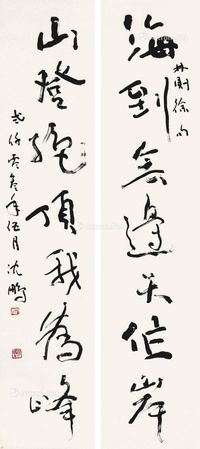 海到無邊天作岸
林則徐句
山登絕頂我為峰
弍仟零叁年伍月沈鵬